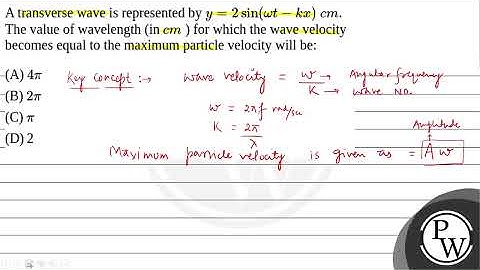 A transverse wave is represented by y = 2 sin(ωt − kx) cm.
The value of wavelength (in cm ) for which the wave velocity
becomes equal to the maximum particle velocity will be:
(A) 4π
(B) 2π
(C) π
(D) 2
Key Concept :→ wave velocity = w/K → Angular frequency
→ wave NO.
w = 2πf rad/sec
K = 2π/λ
Amplitude
Maximum particle velocity is given as = A w
P
W